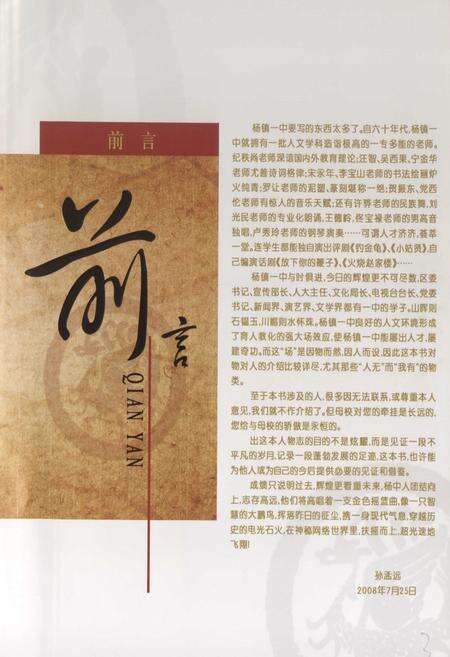 前言
前
言
QIAN YAN
杨镇一中要写的东西太多了。自六十年代，杨镇一
中就拥有一批人文学科造诣很高的一专多能的老师。
纪秩尚老师深谙国内外教育理论；汪智、吴西果、宁金华
老师尤善诗词格律；宋永年、李宝山老师的书法绘画炉
火纯青；罗让老师的泥塑、篆刻堪称一绝；贾振东、党西
伦老师有惊人的音乐天赋；还有许骅老师的民族舞，刘
光民老师的专业化朗诵，王德岭、佟宝禄老师的男高音
独唱，卢秀玲老师的钢琴演奏……可谓人才济济，荟萃
一堂。连学生都能独自演出评剧《钓金龟》、《小姑贤》，自
己编演话剧《放下你的鞭子》、《火烧赵家楼》……
杨镇一中与时俱进，今日的辉煌更不可尽数，区委
书记、宣传部长、人大主任、文化局长、电视台台长、党委
书记、新闻界、演艺界、文学界都有一中的学子。山辉则
石韫玉，川媚则水怀珠。杨镇一中良好的人文环境形成
了育人教化的强大场效应，使杨镇一中能屡出人才，屡
建奇功。而这“场”是因物而然，因人而设，因此这本书对
物对人的介绍比较详尽，尤其那些“人无”而“我有”的物
类。
至于本书涉及的人，很多因无法联系，或尊重本人
意见，我们就不作介绍了。但母校对您的牵挂是长远的，
您给与母校的骄傲是永恒的。
出这本人物志的目的不是炫耀，而是见证一段不
平凡的岁月，记录一段蓬勃发展的足迹，这本书，也许能
为他人或为自己的今后提供必要的见证和借鉴。
成绩只说明过去，辉煌更看重未来，杨中人团结向
上，志存高远，他们将高唱着一支金色摇篮曲，像一只智
慧的大鹏鸟，挥落昨日的征尘，携一身现代气息，穿越历
史的电光石火，在神秘网络世界里，扶摇而上，超光速地
飞翔！
孙孟远
2006年7月25日
3